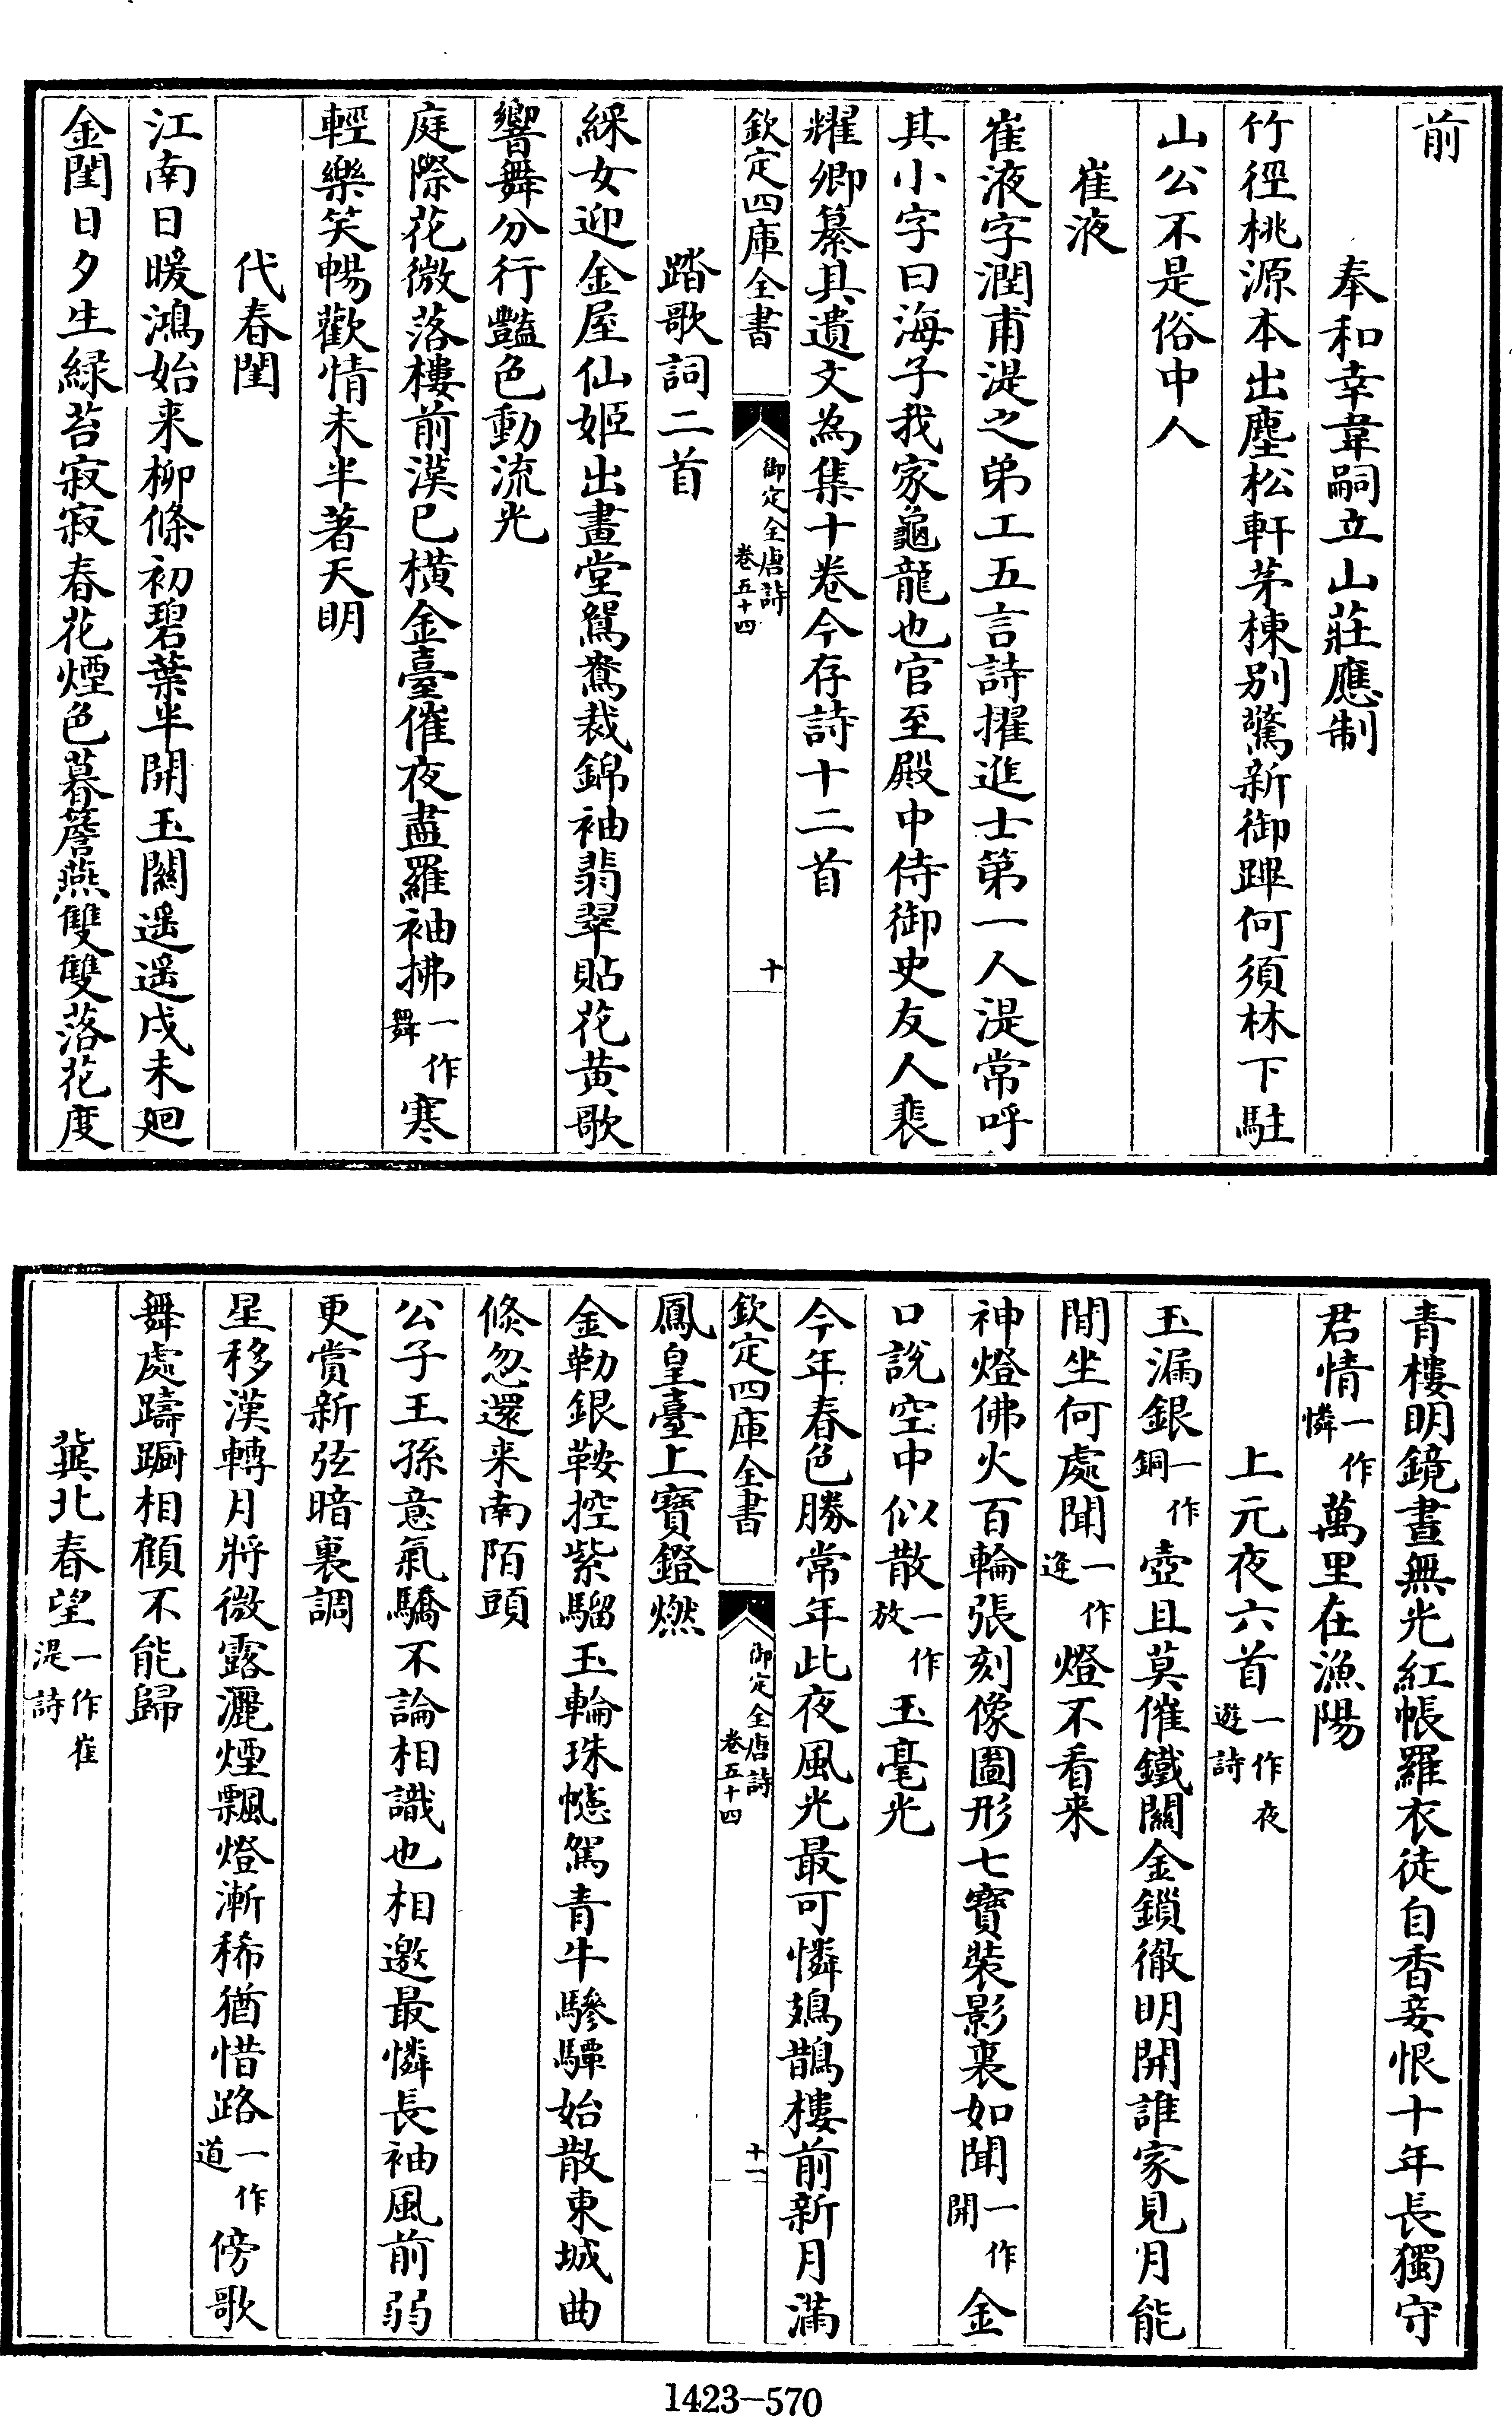 前
奉和幸韋嗣立山莊應制
竹徑桃源本出塵松軒茅棟別驚新御蹕何須林下駐
山公不是俗中人
崔液
崔液字潤甫湜之弟工五言詩擢進士第一人湜常呼
其小字曰海子我家龜龍也官至殿中侍御史友人裴
耀卿纂其遺文為集十卷今存詩十二首
欽定四庫全書 御定全唐詩 卷五十四 十
踏歌詞二首
綵女迎金屋仙姬出畫堂鴛鴦裁錦袖翡翠貼花黄歌
響舞分行豔色動流光
庭際花微落樓前漢已橫金臺催夜盡羅袖拂一作舞寒
輕樂笑暢歡情未半著天明
代春閨
江南日暖鴻始来柳條初碧葉半開玉關遥遥戍未廻
金閨日夕生緑苔寂寂春花煙色暮簷燕雙雙落花度
青樓明鏡晝無光紅帳羅衣徒自香妾恨十年長獨守
君情一作憐萬里在漁陽
上元夜六首一作夜遊詩
玉漏銀一作銅壺且莫催鐵關金鎖徹明開誰家見月能
閒坐何處聞一作逢燈不看来
神燈佛火百輪張刻像圖形七寶裝影裏如聞一作開金
口說空中似散一作放玉毫光
今年春色勝常年此夜風光最可憐鳷鵲樓前新月滿
欽定四庫全書 御定全唐詩 卷五十四 十一
鳳皇臺上寶鐙燃
金勒銀鞍控紫騮玉輪珠幰駕青牛驂驔始散東城曲
倏忽還来南陌頭
公子王孫意氣驕不論相識也相邀最憐長袖風前弱
更賞新弦暗裏調
星移漢轉月將微露灑煙飄燈漸稀猶惜路一作道傍歌
舞處躊躕相顧不能歸
冀北春望一作崔湜詩
1423-570